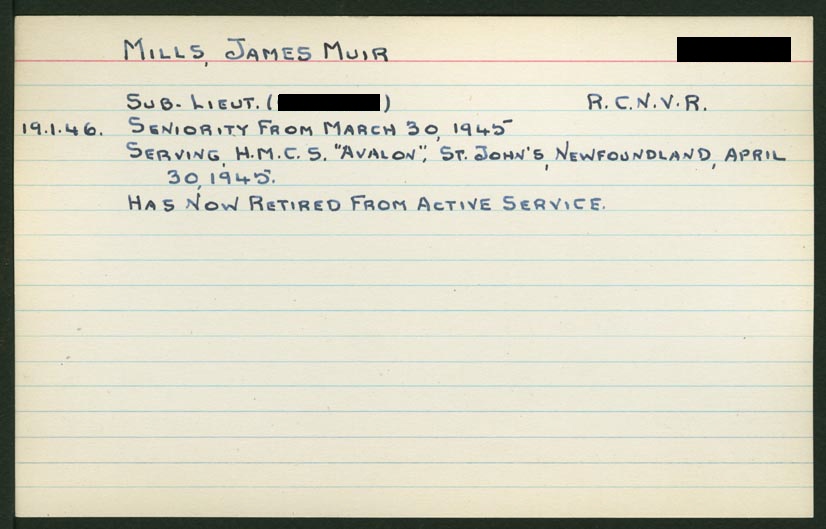 MILLS, JAMES MUIR
SUB-LIEUT. ( ) R.C.N.V.R.
19.1.46. SENIORITY FROM MARCH 30, 1945
SERVING, H.M.C.S. "AVALON", ST. JOHN'S, NEWFOUNDLAND, APRIL
30, 1945.
HAS NOW RETIRED FROM ACTIVE SERVICE.